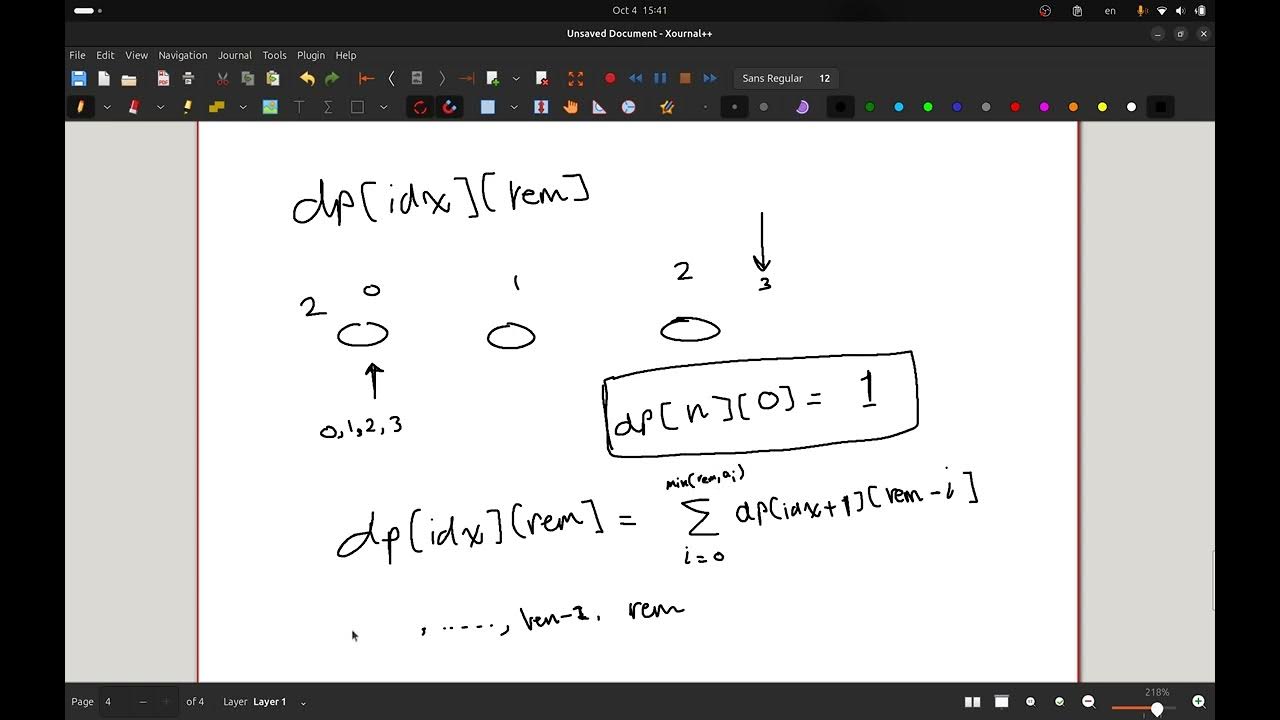 Oct 4 15:41
en
Unsaved Document - Xournal++
File Edit View Navigation Journal Tools Plugin Help
Sans Regular 12
dp[idx][rem]
0 1 2 3
2
0,1,2,3
dp[n][0] = 1
min(rem,ai)
dp[idx][rem] = Σ dp[idx+1][rem-i]
i=0
, ....., rem-1, rem
Page 4 of 4 Layer Layer 1 218%